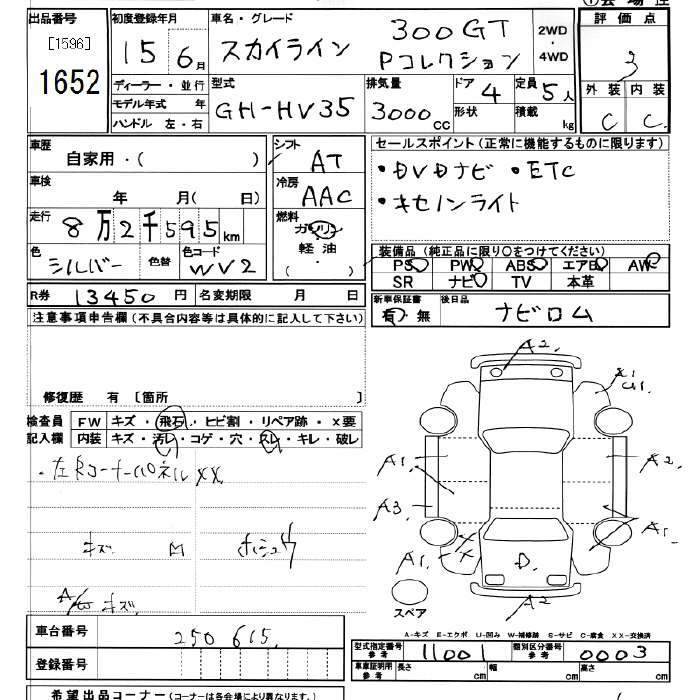 出品番号 初度登録年月 車名・グレード 評価点
[1596] 15 6月 スカイライン 300GT 2WD・4WD 3
1652 Pコレクション
ディーラー・並行 型式 排気量 ドア 定員 外装 内装
モデル年式 年 GH-HV35 3000cc 4 5人 C C
ハンドル 左・右 形状 積載 kg
車歴 シフト セールスポイント(正常に機能するものに限ります)
自家用・( ) AT ・DVDナビ ・ETC
車検 冷房 ・キセノンライト
年 月( 日) AAC
走行 燃料
8万2千595km ガソリン
色 色替 色コード 軽油 装備品(純正品に限り○をつけてください)
シルバー WV2 ( ) PS PW ABS エアB AW
SR ナビ TV 本革
R券 13450円 名変期限 月 日 新車保証書 後日品
有・無 ナビロム
注意事項申告欄(不具合内容等は具体的に記入して下さい)
A2.
修復歴 有 [箇所 ]
検査員 FW キズ・飛石・ヒビ割・リペア跡・×要
記入欄 内装 キズ・汚レ・コゲ・穴・スレ・キレ・破レ
A1. A2.
A3. A1.
キズ
A1. D.
A2
スペア
A-キズ E-エクボ U-凹み W-補修跡 S-サビ C-腐食 XX-交換済
車台番号 250615 型式指定番号 参考 11001 類別区分番号 参考 0003
登録番号 車庫証明用 参考 長さ cm 幅 cm 高さ cm
希望出品コーナー(コーナーは各会場により異なります。)